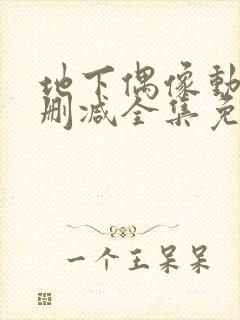 地下偶像動
删减全集免
一个王呆呆